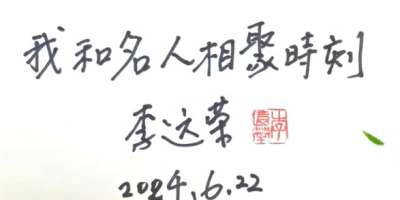 我和名人相聚時刻
李达荣
2024.6.22